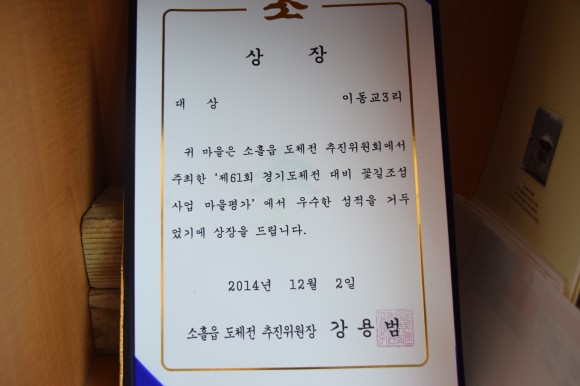 상 장
대 상 이동교3리
귀 마을은 소흘읍 도체전 추진위원회에서
주최한 '제61회 경기도체전 대비 꽃길조성
사업 마을평가' 에서 우수한 성적을 거두
었기에 상장을 드립니다.
2014년 12월 2일
소흘읍 도체전 추진위원장 강 용 범